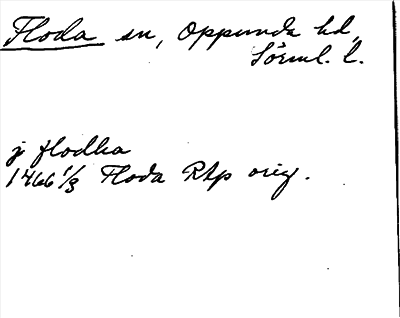 Floda sn, Oppunda hd,
Sörml. l.
j flodha
1466 1/3 Floda RAp orig.